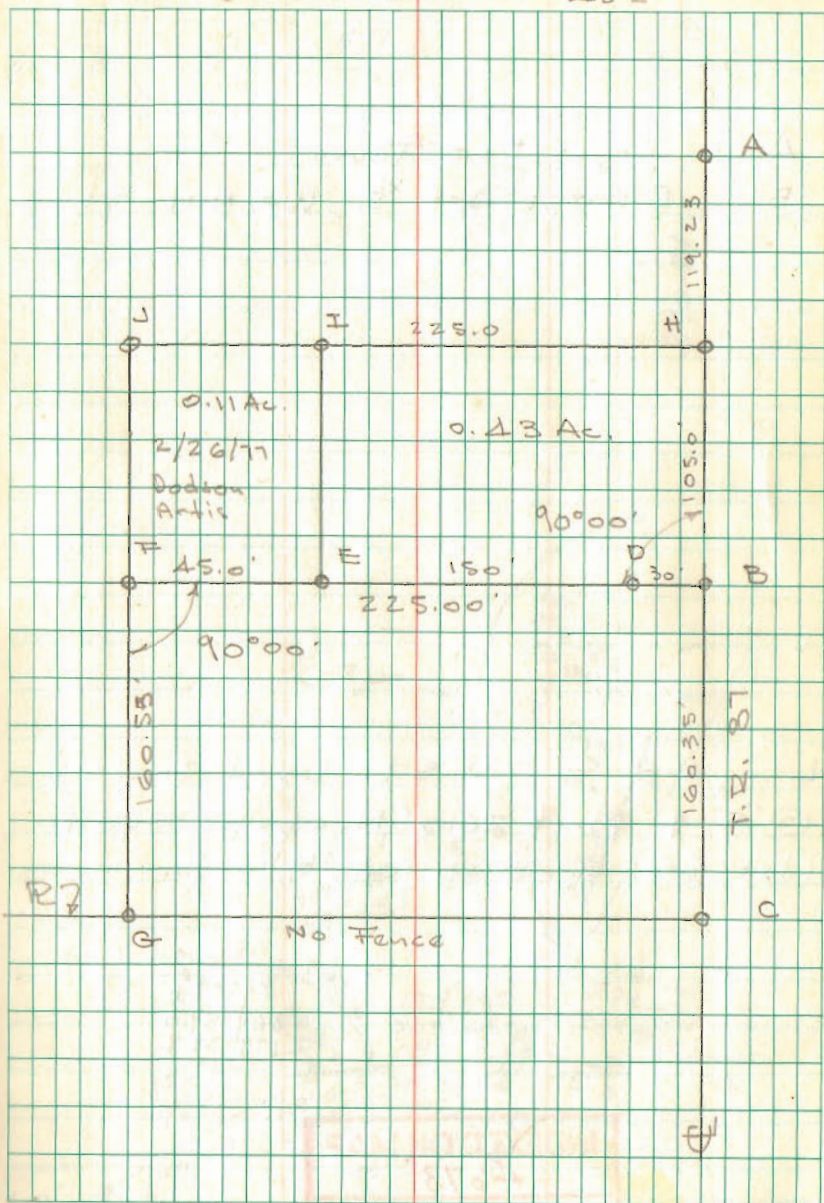 A
119.23
J
I
225.0
H
0.11 Ac.
2/26/77
Dodson
Artis
0.43 Ac.
105.0'
90°00'
F
45.0'
E
150'
D
30'
B
225.00'
90°00'
160.55'
160.35'
T.R. 37
R7
G
No Fence
C